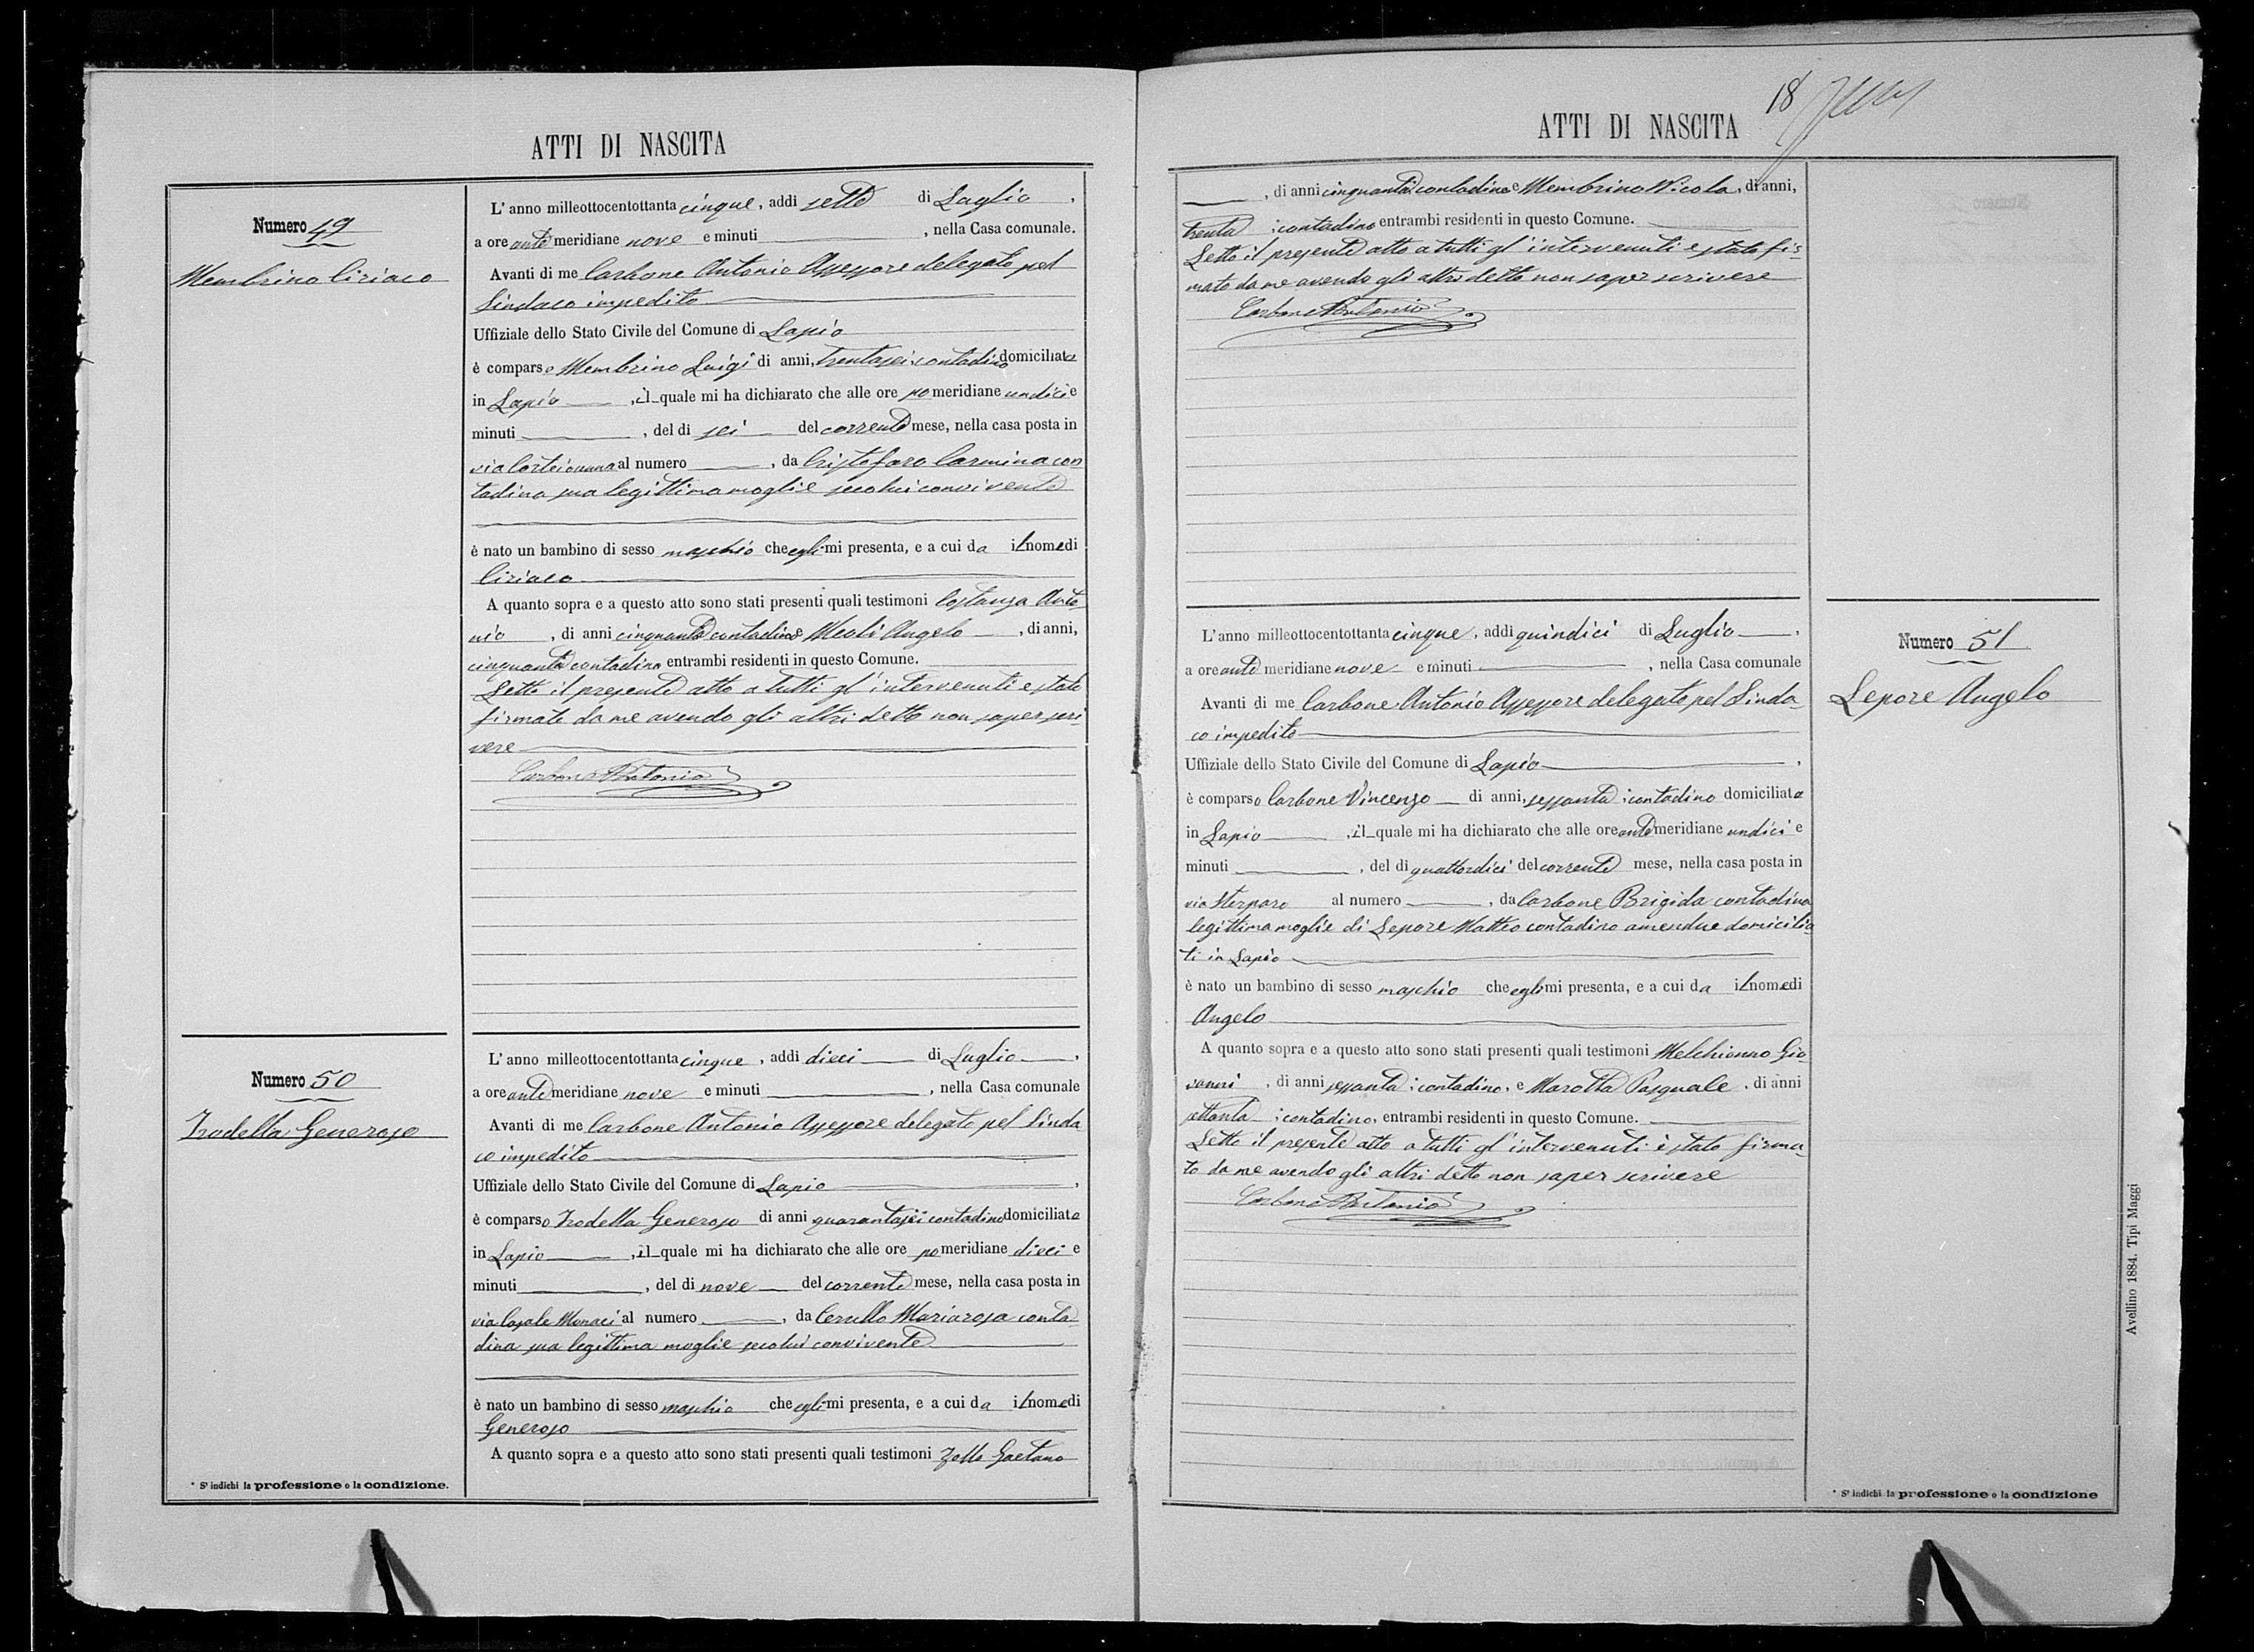 ATTI DI NASCITA
Numero 49
Membrino Ciriaco
L'anno milleottocentottanta cinque, addì sette di Luglio,
a ore ante meridiane nove e minuti , nella Casa comunale.
Avanti di me Carbone Antonio Assessore delegato pel
Sindaco impedito
Uffiziale dello Stato Civile del Comune di Lapio
è comparso Membrino Luigi di anni, trentasei, contadino domiciliato
in Lapio , il quale mi ha dichiarato che alle ore po meridiane undici e
minuti , del dì sei del corrente mese, nella casa posta in
via al numero , da Cristofaro Carmina con
tadina sua legittima moglie secolui convivente
è nato un bambino di sesso maschio che egli mi presenta, e a cui da il nome di
Ciriaco
A quanto sopra e a questo atto sono stati presenti quali testimoni Costanza Anto
nio , di anni cinquanta contadino e Meoli Angelo , di anni,
cinquanta contadino entrambi residenti in questo Comune.
Letto il presente atto a tutti gl'intervenuti e stato
firmato da me avendo gli altri detto non saper scri
vere
Carbone Antonio
Numero 50
Trodella Generoso
L'anno milleottocentottanta cinque, addì dieci di Luglio,
a ore ante meridiane nove e minuti , nella Casa comunale
Avanti di me Carbone Antonio Assessore delegato pel Sinda
co impedito
Uffiziale dello Stato Civile del Comune di Lapio ,
è comparso Trodella Generoso di anni quarantasei contadino domiciliato
in Lapio , il quale mi ha dichiarato che alle ore po meridiane dieci e
minuti , del dì nove del corrente mese, nella casa posta in
via Casale Monaci al numero , da Cerullo Mariarosa conta
dina sua legittima moglie secolui convivente
è nato un bambino di sesso maschio che egli mi presenta, e a cui da il nome di
Generoso
A quanto sopra e a questo atto sono stati presenti quali testimoni Zollo Gaetano
* S'indichi la professione o la condizione.
18
ATTI DI NASCITA
, di anni cinquanta contadino e Membrino Nicola, di anni,
trenta : contadino entrambi residenti in questo Comune.
Letto il presente atto a tutti gl'intervenuti e stato fir
mato da me avendo gli altri detto non saper scrivere
Carbone Antonio
L'anno milleottocentottanta cinque, addì quindici di Luglio ,
a ore ante meridiane nove e minuti , nella Casa comunale
Avanti di me Carbone Antonio Assessore delegato pel Sinda
co impedito
Uffiziale dello Stato Civile del Comune di Lapio ,
è comparso Carbone Vincenzo di anni, sessanta : contadino domiciliato
in Lapio , il quale mi ha dichiarato che alle ore ante meridiane undici e
minuti , del dì quattordici del corrente mese, nella casa posta in
via Sterparo al numero , da Carbone Brigida contadina
legittima moglie di Lepore Matteo contadino amendue domicilia
ti in Lapio
è nato un bambino di sesso maschio che egli mi presenta, e a cui da il nome di
Angelo
A quanto sopra e a questo atto sono stati presenti quali testimoni Melchionno Gio
vanni , di anni sessanta : contadino, e Marotta Pasquale , di anni
settanta : contadino, entrambi residenti in questo Comune.
Letto il presente atto a tutti gl'intervenuti è stato firma
to da me avendo gli altri detto non saper scrivere
Carbone Antonio
Numero 51
Lepore Angelo
* S'indichi la professione o la condizione
Avellino 1884. Tipi Maggi